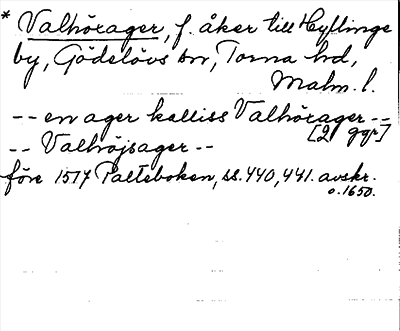 * Valhörager, f. åker till Hyllinge
by, Gödelövs sn, Torna hd,
Malm. l.
-- en ager kalliss Valhörager --
[2 ggr]
-- Valhöjsager --
före 1514 Palteboken, ss. 440, 441. avskr.
o. 1650.